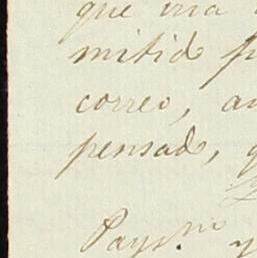 que iria
mitido p
correo, a
pensado, q
Pays.no y